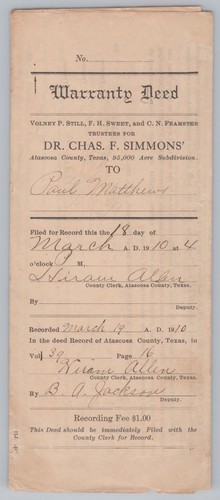 No.
Warranty Deed
VOLNEY P. STILL, F. H. SWEET, and C. N. FEAMSTER
TRUSTEES FOR
DR. CHAS. F. SIMMONS'
Atascosa County, Texas, 95,000 Acre Subdivision.
TO
Paul Matthews
Filed for Record this the 18 day of
March A. D. 1910 at 4
o'clock P M,
Hiram Allen
County Clerk, Atascosa County, Texas.
By
Deputy.
Recorded March 19 A. D. 1910
In the deed Record of Atascosa County, Texas, in
Vol. 39 Page 16
Hiram Allen
County Clerk, Atascosa County, Texas.
By B. A. Jackson
Deputy.
Recording Fee $1.00
This Deed should be immediately Filed with the
County Clerk for Record.